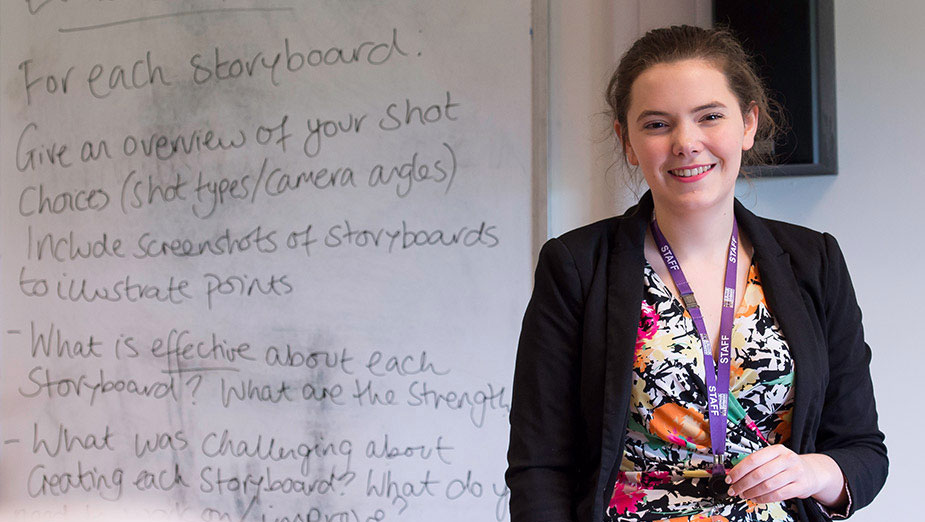 For each storyboard:
Give an overview of your shot
choices (shot types/camera angles)
Include screenshots of storyboards
to illustrate points
- What is effective about each
Storyboard? What are the strength
- What was challenging about
Creating each Storyboard? What do y
improve?
STAFF
STAFF
STAFF
STAFF